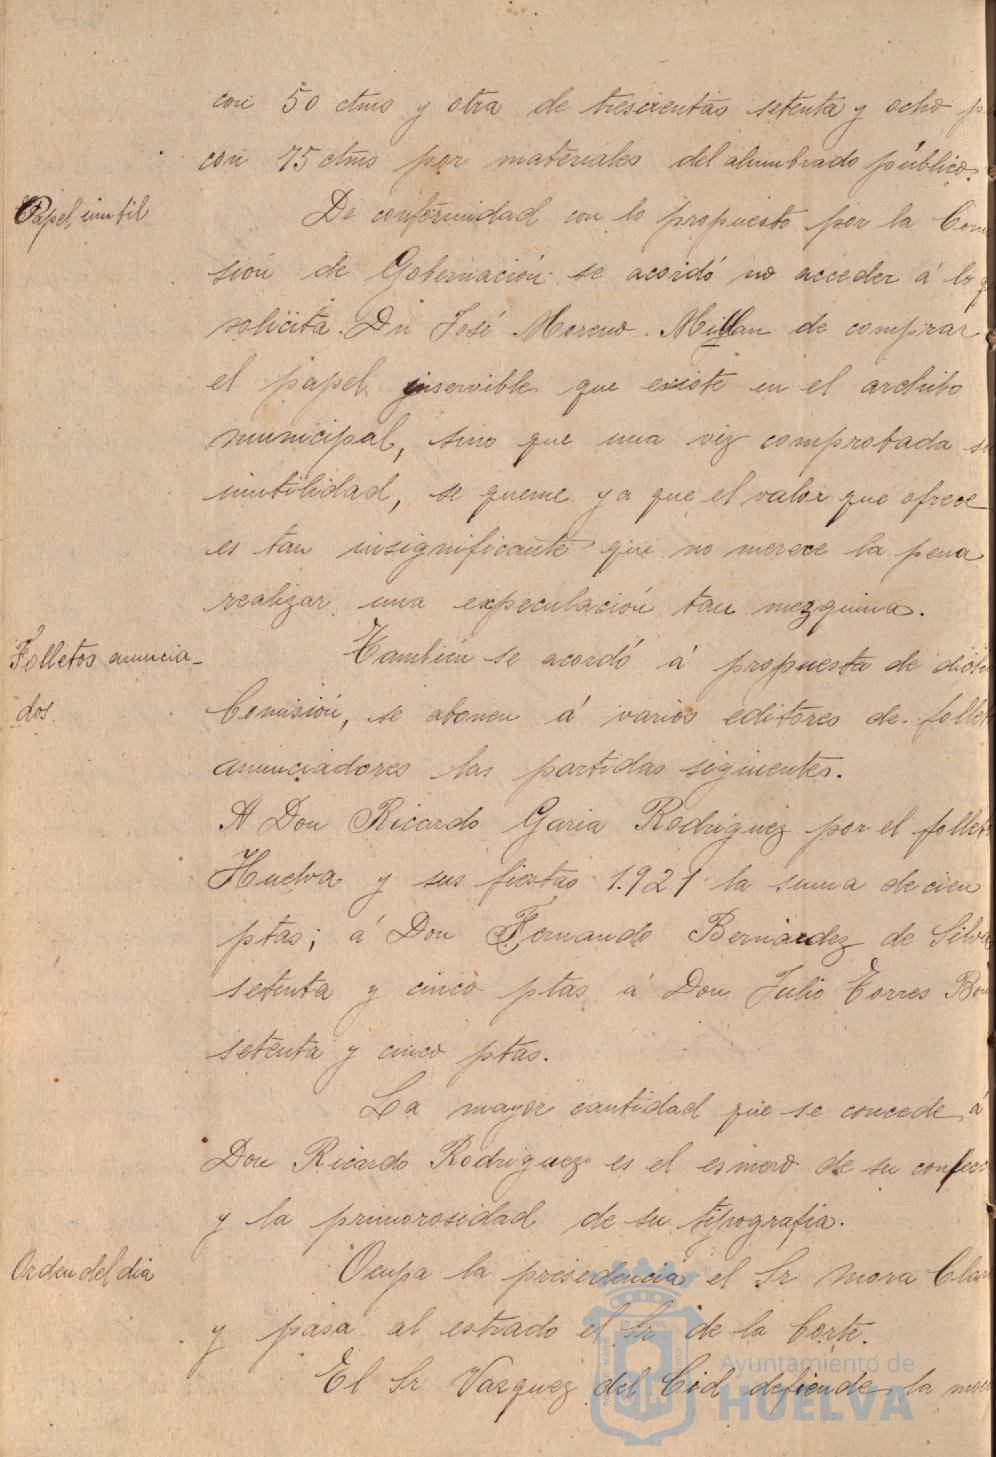 con 50 ctms y otra de trescientas setenta y ocho p
con 75 ctms por materiales del alumbrado público.
Papel inutil
De conformidad con lo propuesto por la Comi
sión de Gobernación se acordó no acceder á lo q
solicita Dn José Moreno Millan de comprar
el papel inservible que existe en el archibo
municipal, sino que una vez comprobada su
inutilidad, se queme ya que el valor que ofrece
es tan insignificante que no merece la pena
realizar una expeculación tan mezquina.
Folletos anuncia-
dos.
También se acordó á propuesta de dicha
Comisión, se abonen á varios editores de follet
anunciadores las partidas siguientes.
A Don Ricardo Garia Rodriguez por el follet
Huelva y sus fiestas 1.921 la suma de cien
ptas; á Don Fernando Bernardez de Silva
setenta y cinco ptas á Don Julio Torres Bon
setenta y cinco ptas.
La mayor cantidad que se concede á
Don Ricardo Rodriguez es el esmero de su confecc
y la primorosidad de su tipografia.
Orden del dia
Ocupa la presidencia el Sr Mora Clar
y pasa al estrado el Sr de la Corte.
El Sr Vazquez del Cid defiende la moc
Ayuntamiento de
HUELVA